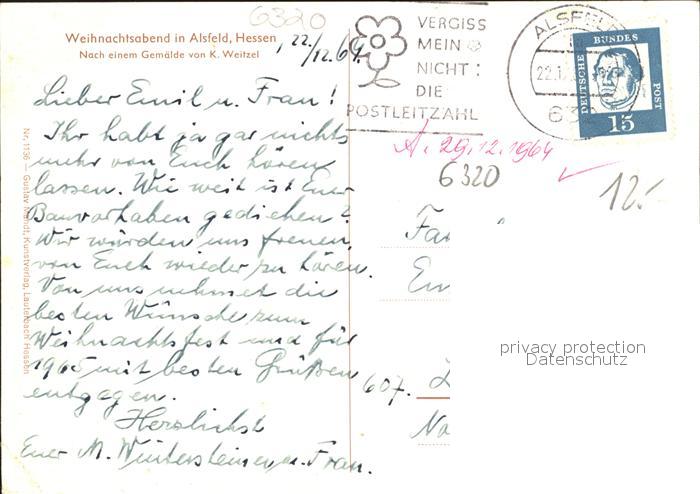 6320
Weihnachtsabend in Alsfeld, Hessen
Nach einem Gemälde von K. Weitzel
22./12.64.
Lieber Emil u. Frau!
Ihr habt ja gar nichts
mehr von Euch hören
lassen. Wie weit ist Euer
Bauvorhaben gediehen?
Wir würden uns freuen,
von Euch wieder zu hören.
Von uns nehmet die
besten Wünsche zum
Weihnachtsfest und für
1965 mit besten Grüßen
entgegen.
Herzlichst
Euer M. Wintersteiner u. Frau.
Nr. 1136 — Gustav Mandt, Kunstverlag, Lauterbach Hessen
VERGISS
MEIN
NICHT:
DIE
POSTLEITZAHL
ALSFELD
22.12
DEUTSCHE BUNDESPOST
15
A. 29.12.1964
6320
12.-
Fa
Em
607.
No
privacy protection
Datenschutz